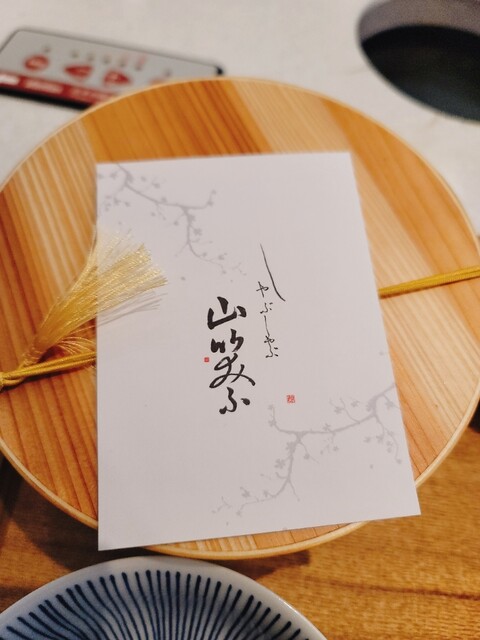 しゃぶしゃぶ
山笑ふ